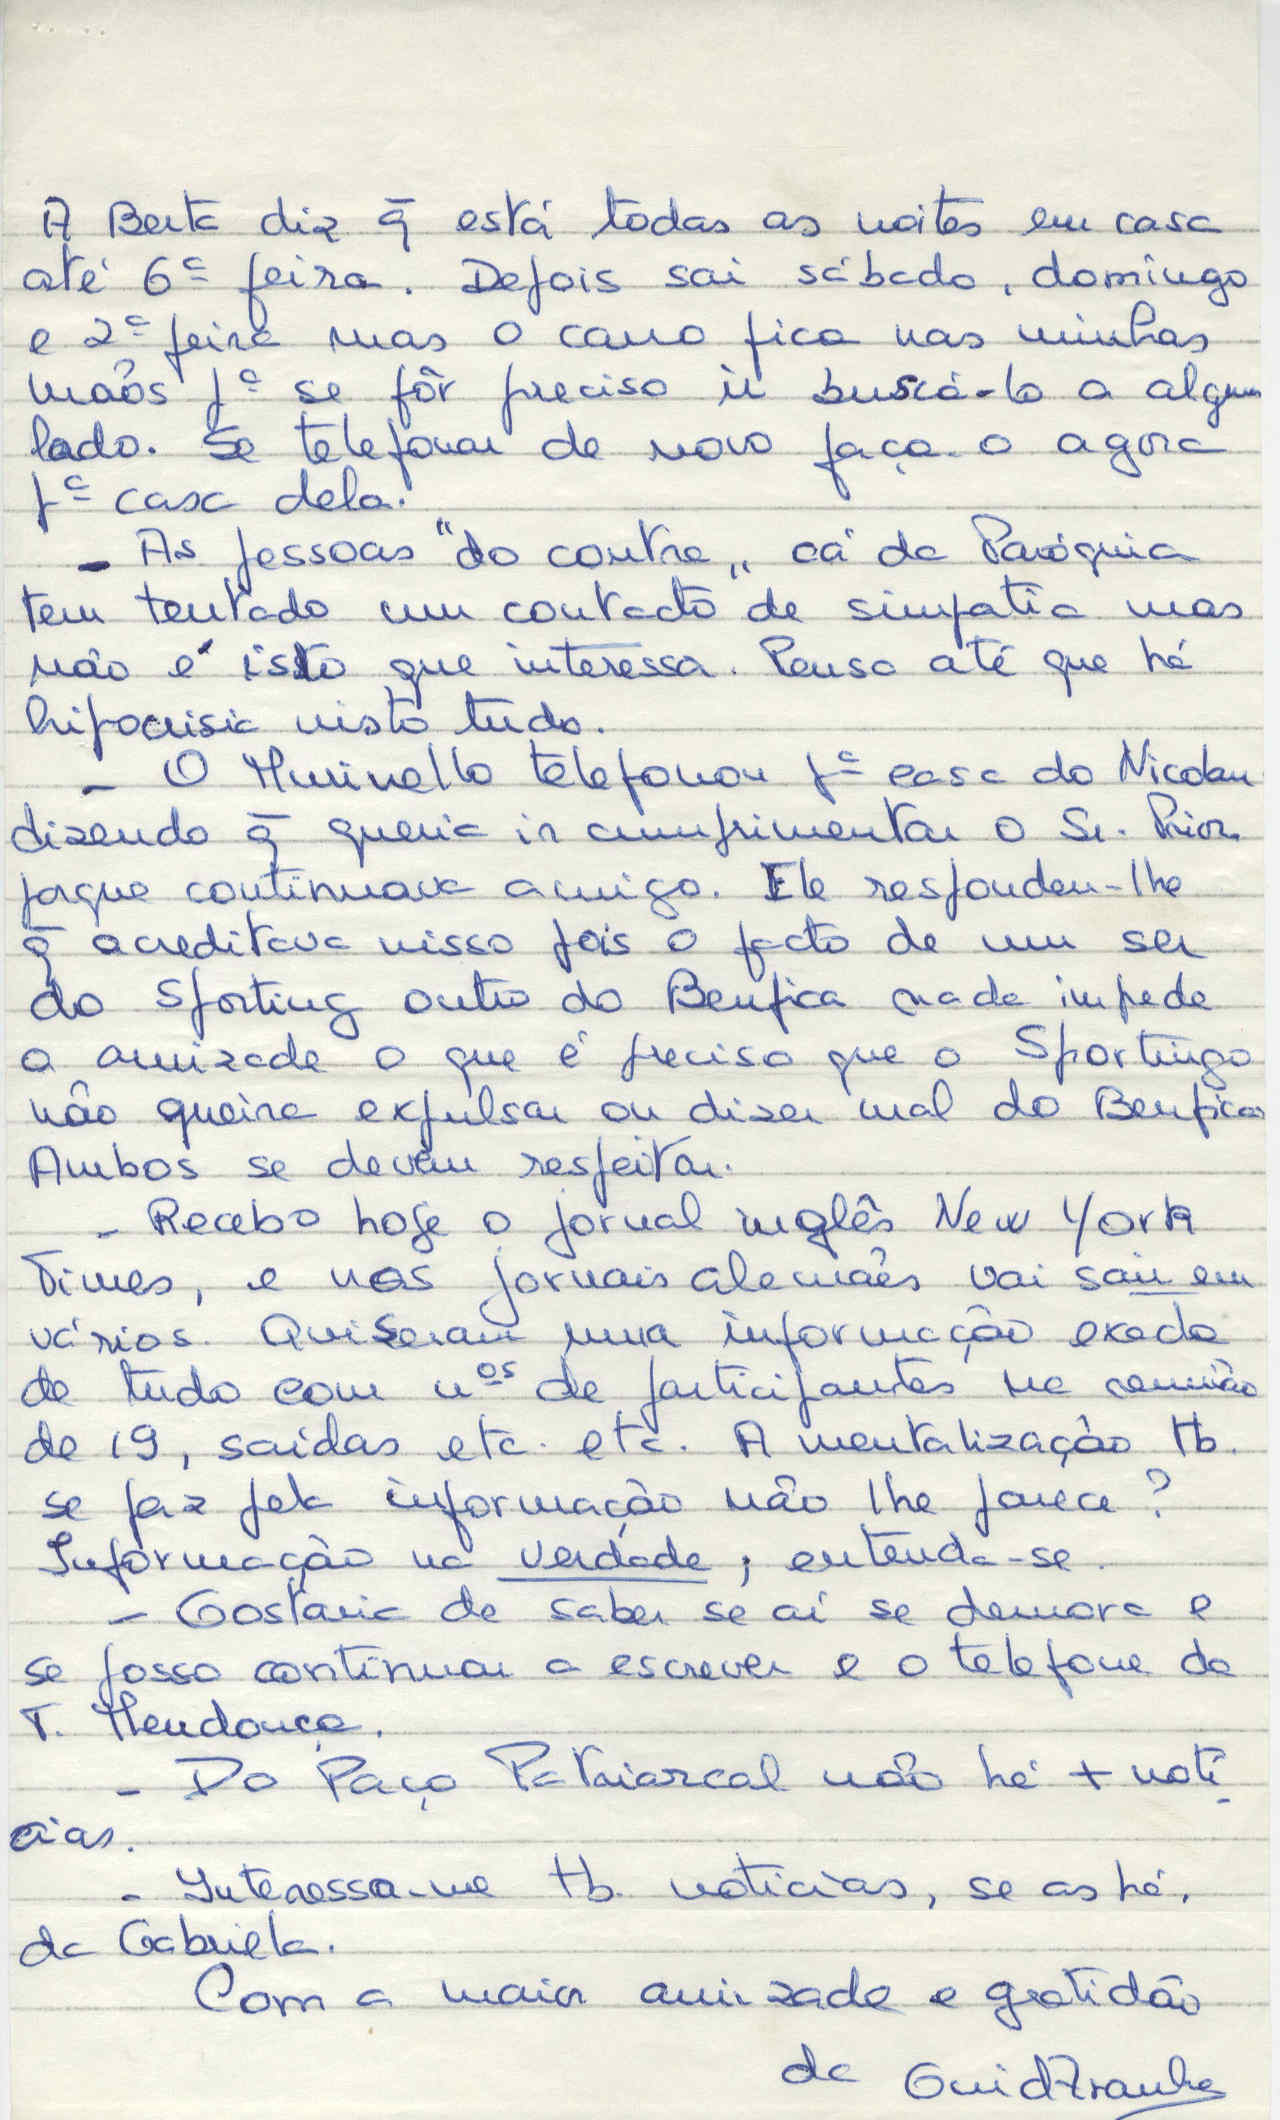 A Berta diz q̄ está todas as noites em casa
até 6ª feira. Depois sai sábado, domingo
e 2ª feira mas o carro fica nas minhas
maõs pª se fôr preciso ir buscá-lo a algum
lado. Se telefonar de novo faça-o agora
pª casa dela.
- As pessoas "do contra„ cá da Paróquia
tem tentado um contacto de simpatia mas
não é isto que interessa. Penso até que há
hipocrisia nisto tudo.
- O Murinello telefonou pª casa do Nicolau
dizendo q̄ queria ir cumprimentar o Sr. Prior
porque continuava amigo. Ele respondeu-lhe
q̄ acreditava nisso pois o facto de um ser
do Sporting outro do Benfica nada impede
a amizade o que é preciso que o Sporting
não queira expulsar ou dizer mal do Benfica
Ambos se devem respeitar.
- Recebo hoje o jornal inglês New York
Times, e nos jornais alemães vai sair em
vários. Quiseram uma informação exacta
de tudo com nºs de participantes na reunião
de 19, saidas etc. etc. A mentalização tb.
se faz pela informação não lhe parece?
Informação na verdade, entenda-se.
- Gostaria de saber se aí se demora e
se posso continuar a escrever e o telefone do
T. Mendonça.
- Do Paço Patriarcal não há + notí
cias.
- Interessa-me tb. noticias, se as há,
da Gabriela.
Com a maior amizade e gratidão
da